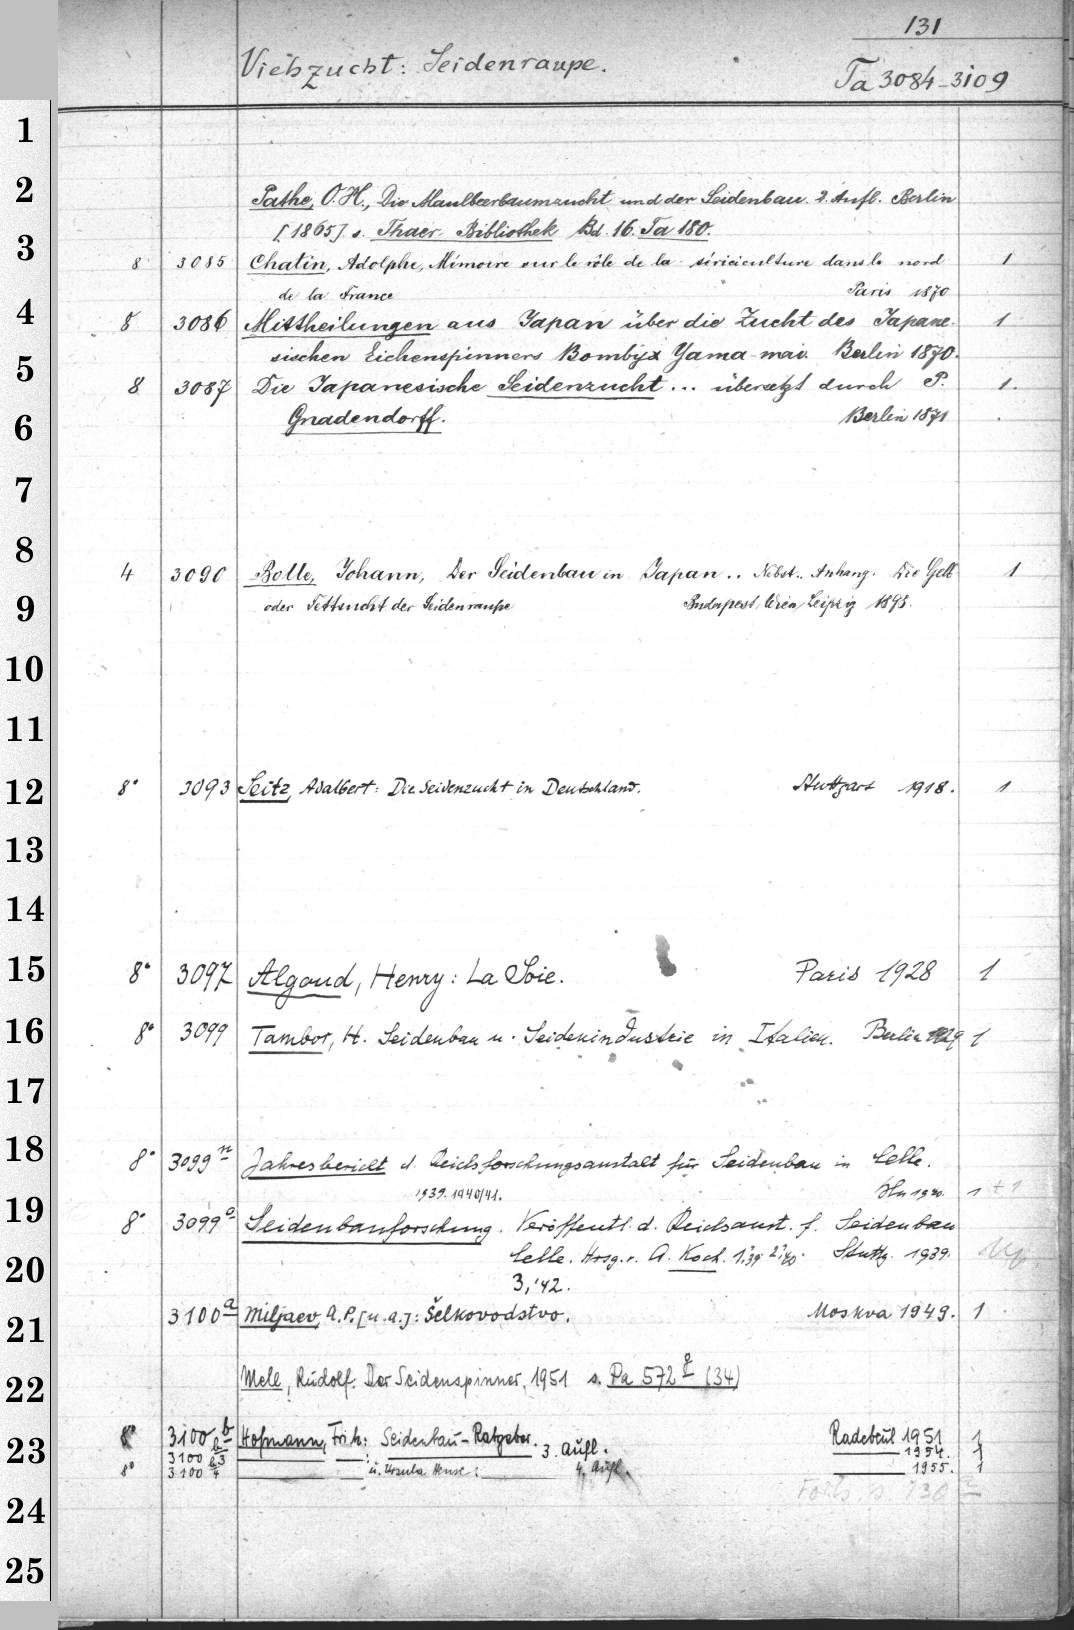 131
Viehzucht: Seidenraupe.
Ta 3084-3109
1
2
Pathe, O.H., Die Maulbeerbaumzucht und der Seidenbau. 2. Aufl. Berlin
[1865]. s. Thaer-Bibliothek Bd. 16. Ta 180.
3
8 3085 Chatin, Adolphe, Mémoire sur le rôle de la sériciculture dans le nord 1
de la France Paris 1870
4
8 3086 Mittheilungen aus Japan über die Zucht des Japane- 1
sischen Eichenspinners Bombyx Yama-mai. Berlin 1870.
5
8 3087 Die Japanesische Seidenzucht... übersetzt durch P. 1.
6
Gnadendorff. Berlin 1871
7
8
4 3090 Bolle, Johann, Der Seidenbau in Japan.. Nebst.. Anhang. Die Gelb- 1
9
oder Fettsucht der Seidenraupe Budapest, Wien, Leipzig 1898.
10
11
12
8° 3093 Seitz, Adalbert: Die Seidenzucht in Deutschland. Stuttgart 1918. 1
13
14
15
8° 3097 Algoud, Henry: La Soie. Paris 1928 1
16
8° 3099 Tambor, H. Seidenbau u. Seidenindustrie in Italien. Berlin 1929 1
17
18
8° 3099 n Jahresbericht d. Reichsforschungsanstalt für Seidenbau in Celle.
1939. 1940/41. 1 + 1
19
8° 3099 a Seidenbauforschung. Veröffentl. d. Reichsanst. f. Seidenbau
20
Celle. Hrsg. v. A. Koch. 1,'39. 2,'40. Stuttg. 1939.
3,'42.
21
3100 a Miljaev, A.P. [u.a.]: Šelkovodstvo. Moskva 1949. 1
22
Mell, Rudolf. Der Seidenspinner. 1951 s. Pa 572 g (34)
23
8° 3100 b Hofmann, Fritz: Seidenbau-Ratgeber. Radebeul 1951 1
3100 b 3 3. Aufl. 1954. 1
8° 3100 b 4 u. Ursula Hense: 4. Aufl. 1955. 1
Forts. s. 130
24
25